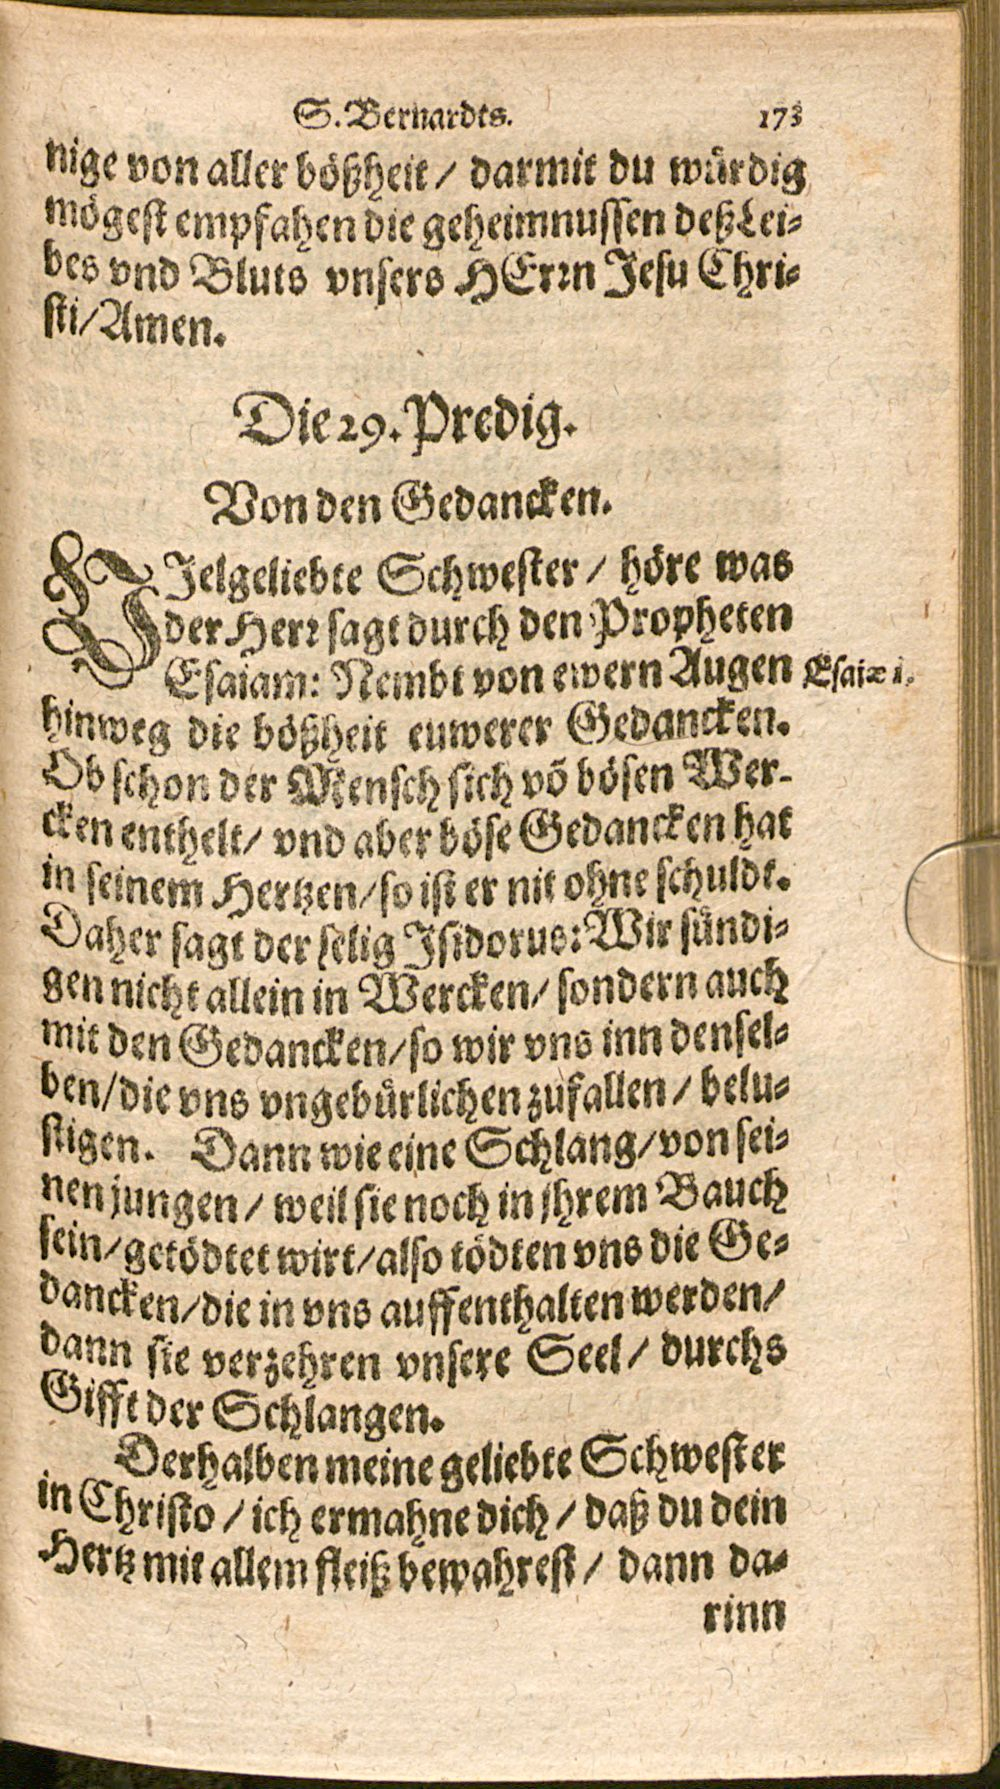 S. Bernardts. 173
nige von aller bößheit / darmit du würdig
mögest empfahen die geheimnussen deß Lei-
bes vnd Bluts vnsers HErrn Jesu Chri-
sti / Amen.
Die 29. Predig.
Von den Gedancken.
VJelgeliebte Schwester / höre was
der Herr sagt durch den Propheten
Esaiam: Nembt von ewern Augen Esaiæ 1.
hinweg die bößheit euwerer Gedancken.
Ob schon der Mensch sich võ bösen Wer-
cken enthelt / vnd aber böse Gedancken hat
in seinem Hertzen / so ist er nit ohne schuldt.
Daher sagt der selig Isidorus: Wir sündi-
gen nicht allein in Wercken / sondern auch
mit den Gedancken / so wir vns inn densel-
ben / die vns vngebürlichen zufallen / belu-
stigen. Dann wie eine Schlang / von sei-
nen jungen / weil sie noch in jhrem Bauch
sein / getödtet wirt / also tödten vns die Ge-
dancken / die in vns auffenthalten werden /
dann sie verzehren vnsere Seel / durchs
Gifft der Schlangen.
Derhalben meine geliebte Schwester
in Christo / ich ermahne dich / daß du dein
Hertz mit allem fleiß bewahrest / dann da-
rinn